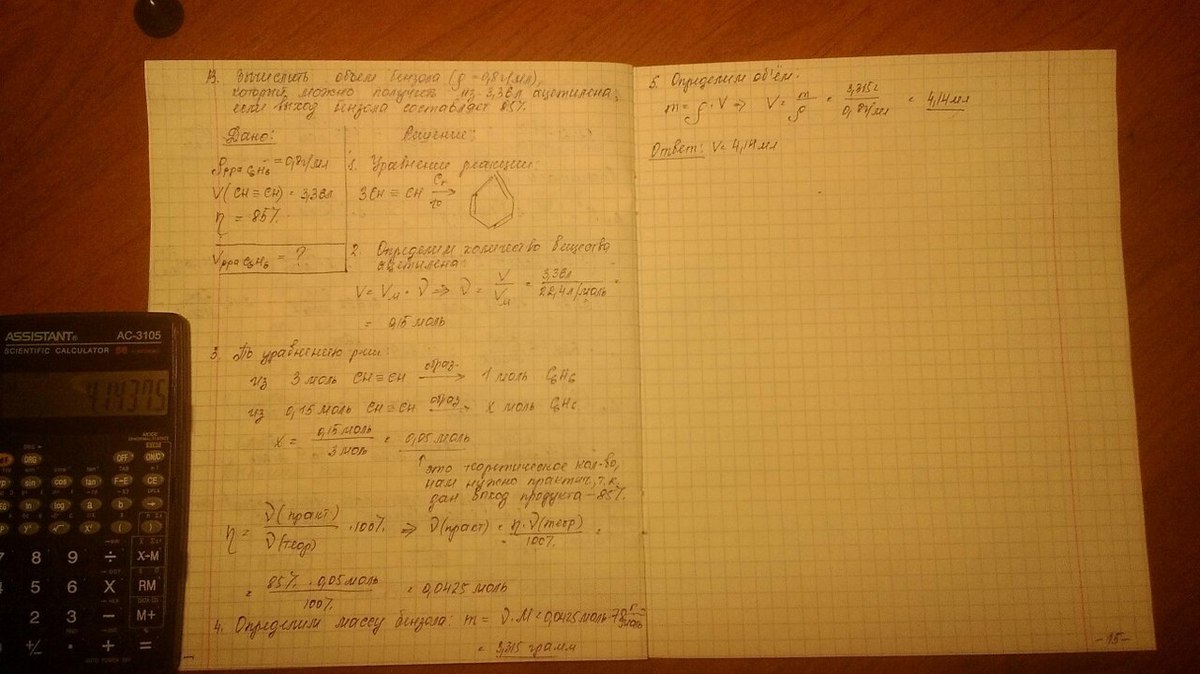 13. Вычислить объем бензола (ρ=0,8г/мл),
который можно получить из 3,36л ацетилена,
если выход бензола составляет 85%
Дано:
ρ р-ра C₆H₆ = 0,8г/мл
V(CH≡CH) = 3,36л
η = 85%
V р-ра C₆H₆ = ?
Решение:
1. Уравнение реакции:
3CH≡CH → Cг t°
2. Определим количество вещества
ацетилена:
V = Vм · ν ⇒ ν = V/Vм = 3,36л/22,4л/моль =
= 0,15 моль
3. По уравнению р-ии:
из 3 моль CH≡CH образ. → 1 моль C₆H₆
из 0,15 моль CH≡CH образ. → x моль C₆H₆
x = 0,15 моль/3 моль = 0,05 моль
↑ это теоретическое кол-во,
нам нужно практич., т.к.
дан выход продукта – 85%.
η = ν(практ)/ν(теор) · 100% ⇒ ν(практ) = η·ν(теор)/100% =
= 85% · 0,05 моль/100% = 0,0425 моль
4. Определим массу бензола: m = ν·M = 0,0425 моль · 78 г/моль
= 3,315 грамм
5. Определим объём:
m = ρ·V ⇒ V = m/ρ = 3,315г/0,8г/мл = 4,14 мл
Ответ: V = 4,14 мл
-15-
ASSISTANT®
AC-3105
SCIENTIFIC CALCULATOR 56
4.14375
DRG
OFF
ON/C
sin
cos
tan
F↔E
CE
ln
log
a
b
→
√
x²
(
)
7
8
9
÷
X→M
4
5
6
X
RM
2
3
−
M+
+/−
•
+
=
AUTO POWER OFF